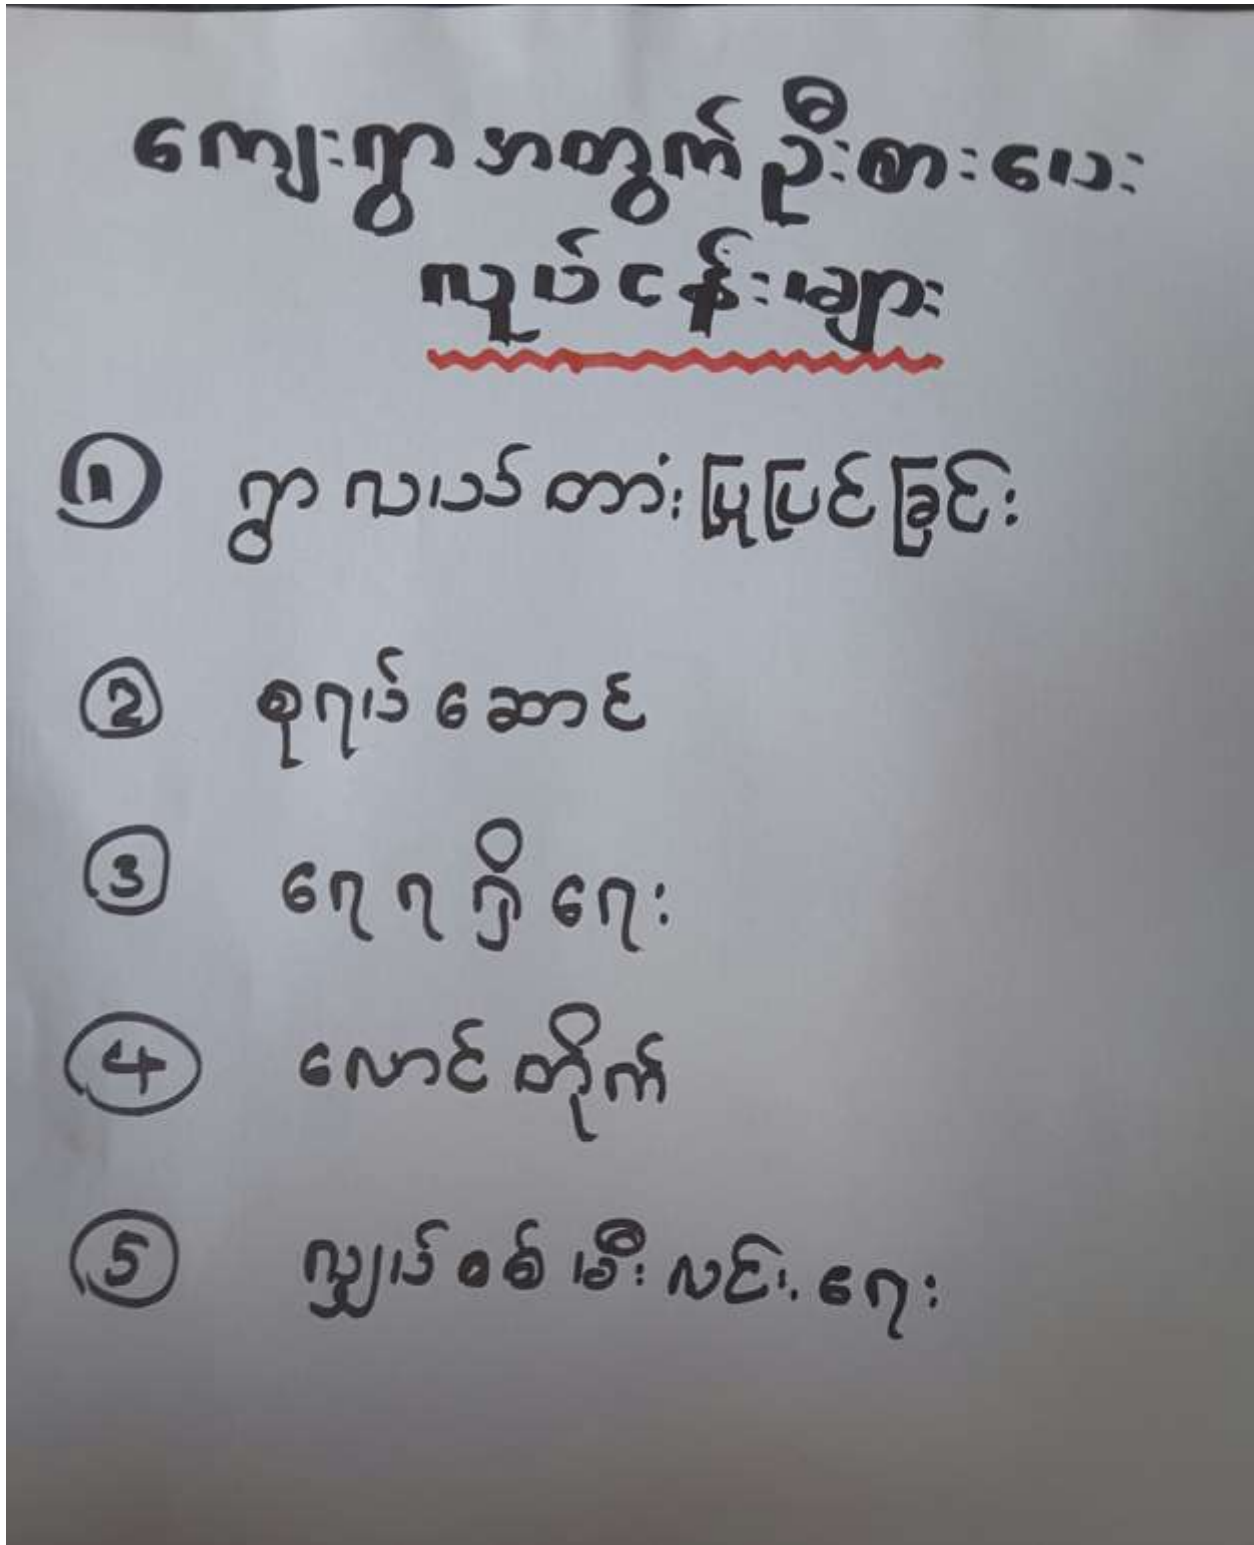 ကျေးရွာအတွက် ဦးစားပေး
လုပ်ငန်းများ
① ရွာလယ်တံတားပြုပြင်ခြင်း
② စုရပ်ဆောင်
③ ရေရရှိရေး
④ လောင်တိုက်
⑤ လျှပ်စစ်မီးလင်းရေး